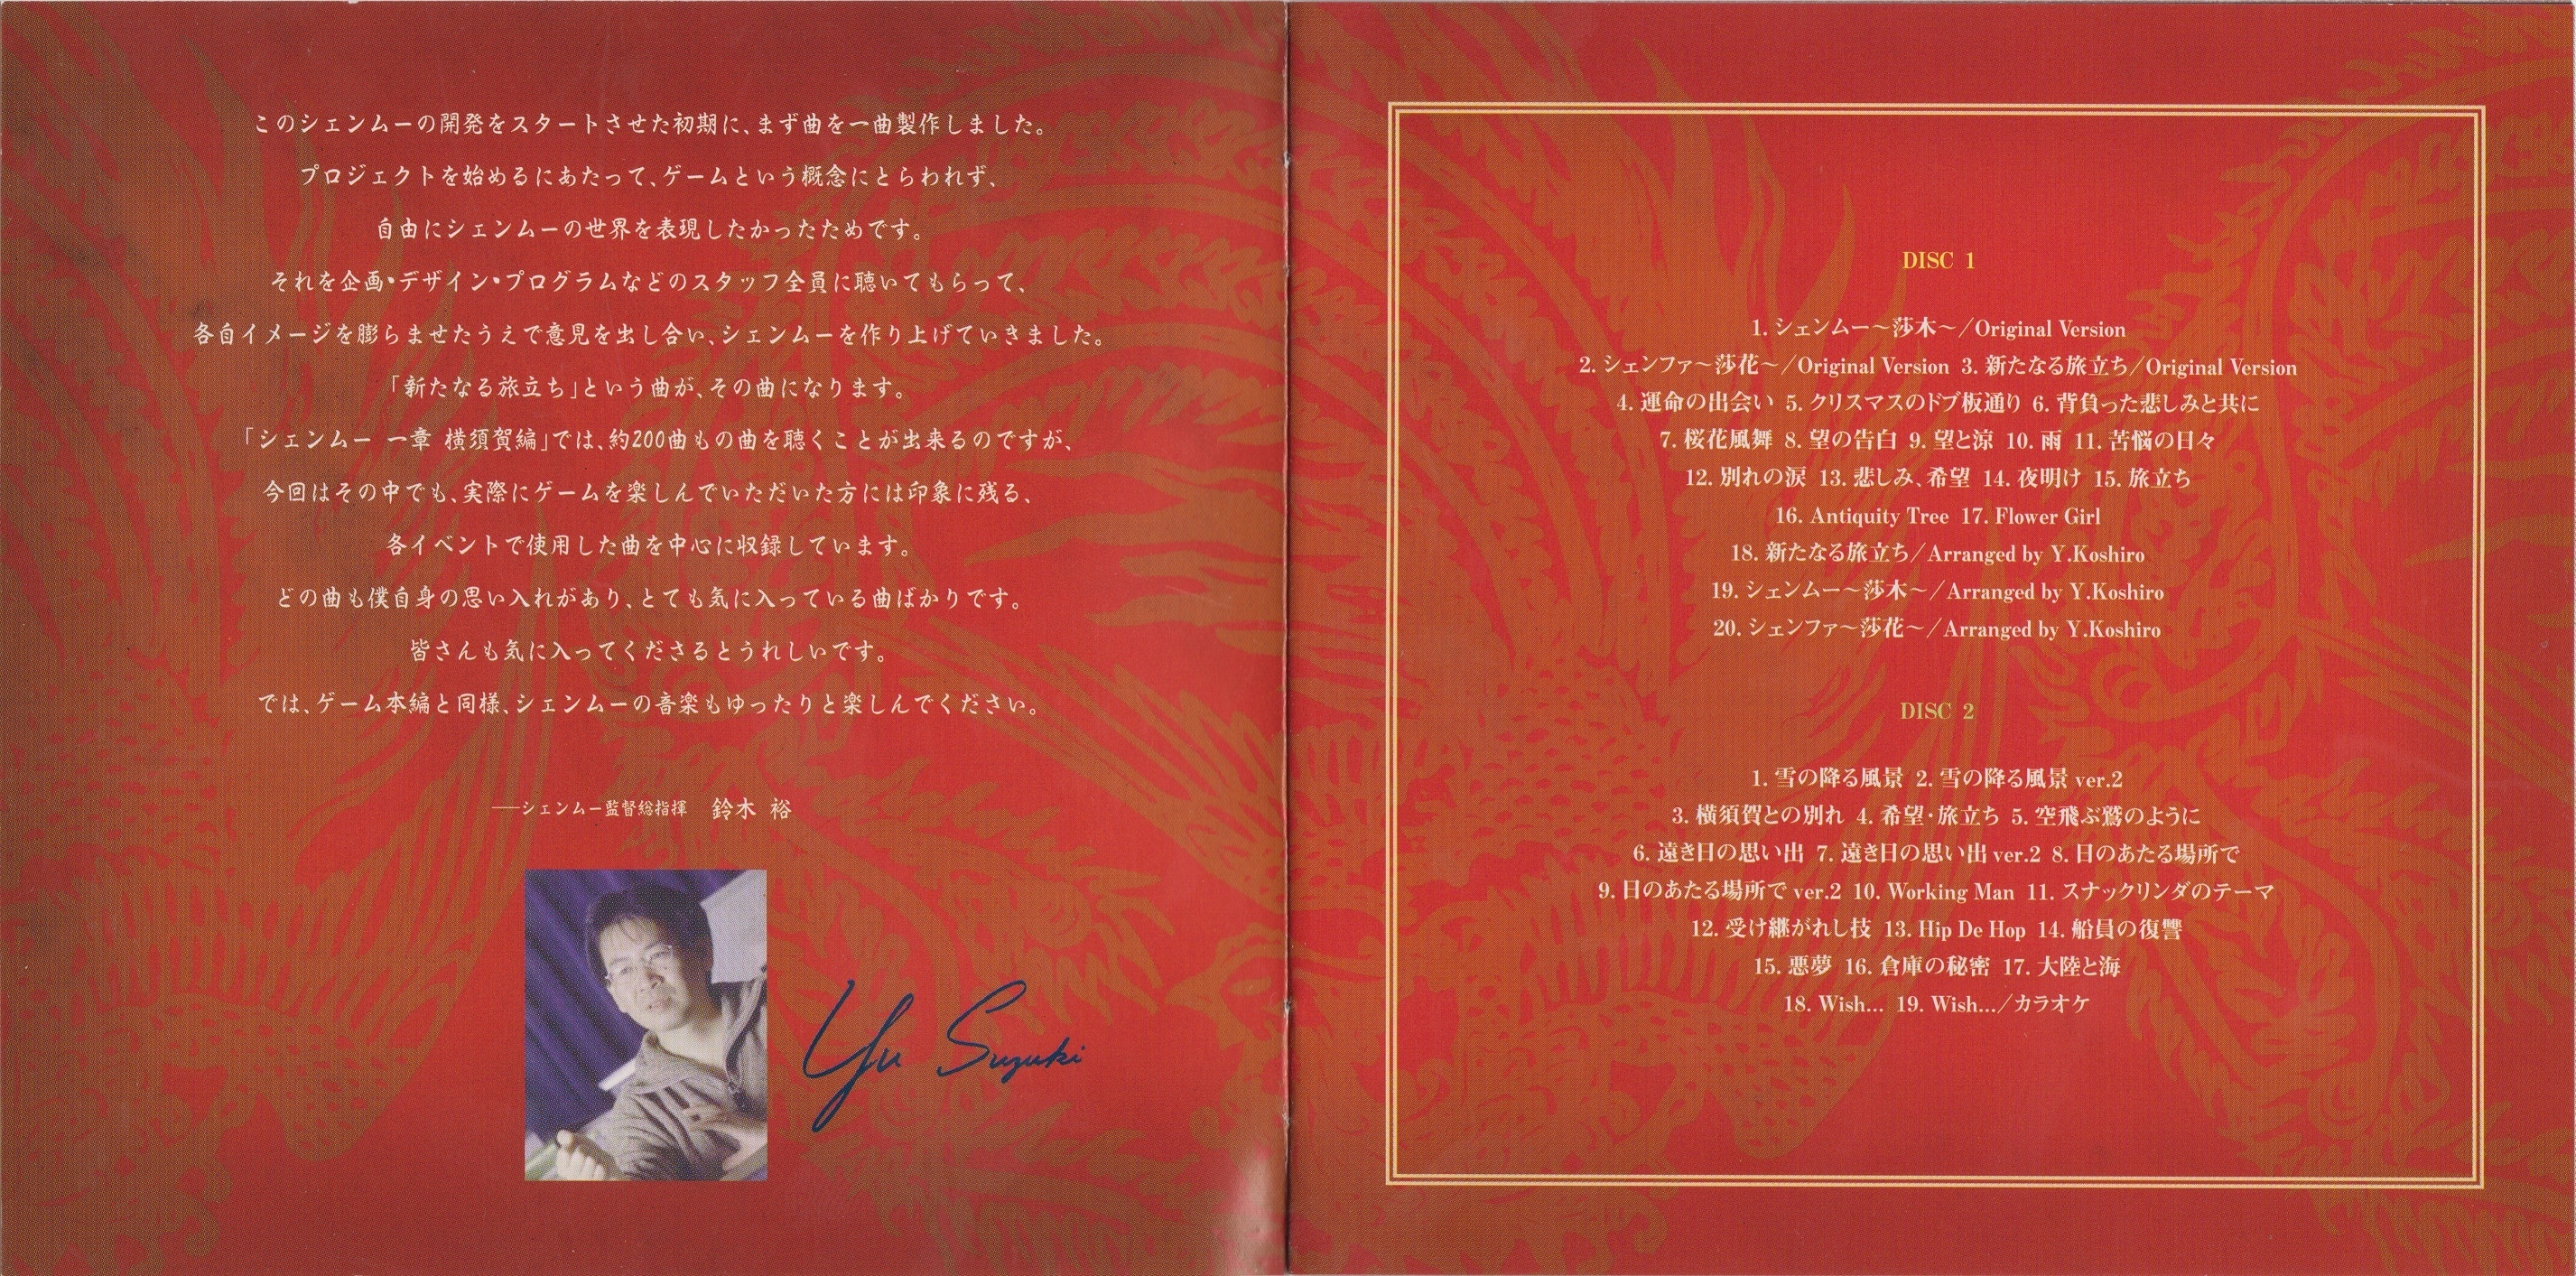 このシェンムーの開発をスタートさせた初期に、まず曲を一曲製作しました。
プロジェクトを始めるにあたって、ゲームという概念にとらわれず、
自由にシェンムーの世界を表現したかったためです。
それを企画・デザイン・プログラムなどのスタッフ全員に聴いてもらって、
各自イメージを膨らませたうえで意見を出し合い、シェンムーを作り上げていきました。
「新たなる旅立ち」という曲が、その曲になります。
「シェンムー 一章 横須賀編」では、約200曲もの曲を聴くことが出来るのですが、
今回はその中でも、実際にゲームを楽しんでいただいた方には印象に残る、
各イベントで使用した曲を中心に収録しています。
どの曲も僕自身の思い入れがあり、とても気に入っている曲ばかりです。
皆さんも気に入ってくださるとうれしいです。
では、ゲーム本編と同様、シェンムーの音楽もゆったりと楽しんでください。
──シェンムー監督総指揮 鈴木 裕
Yu Suzuki
DISC 1
1. シェンムー〜莎木〜／Original Version
2. シェンファ〜莎花〜／Original Version 3. 新たなる旅立ち／Original Version
4. 運命の出会い 5. クリスマスのドブ板通り 6. 背負った悲しみと共に
7. 桜花風舞 8. 望の告白 9. 望と涼 10. 雨 11. 苦悩の日々
12. 別れの涙 13. 悲しみ、希望 14. 夜明け 15. 旅立ち
16. Antiquity Tree 17. Flower Girl
18. 新たなる旅立ち／Arranged by Y.Koshiro
19. シェンムー〜莎木〜／Arranged by Y.Koshiro
20. シェンファ〜莎花〜／Arranged by Y.Koshiro
DISC 2
1. 雪の降る風景 2. 雪の降る風景 ver.2
3. 横須賀との別れ 4. 希望・旅立ち 5. 空飛ぶ鷲のように
6. 遠き日の思い出 7. 遠き日の思い出 ver.2 8. 日のあたる場所で
9. 日のあたる場所で ver.2 10. Working Man 11. スナックリンダのテーマ
12. 受け継がれし技 13. Hip De Hop 14. 船員の復讐
15. 悪夢 16. 倉庫の秘密 17. 大陸と海
18. Wish... 19. Wish...／カラオケ